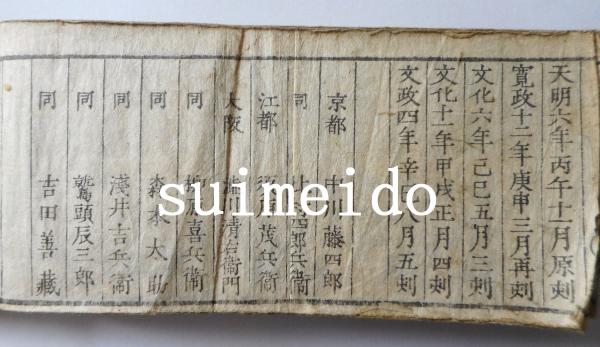 天明六年丙午十一月原刻
寛政十二年庚申三月再刻
文化六年己巳五月三刻
文化十一年甲戌正月四刻
文政四年辛八月五刻
京都 中川藤四郎
同 四郎兵衞
江都 須原茂兵衞
大阪 清右衞門
同 喜兵衞
同 森本太助
同 淺井吉兵衞
同 鷲頭辰三郎
同 吉田善藏
suimeido